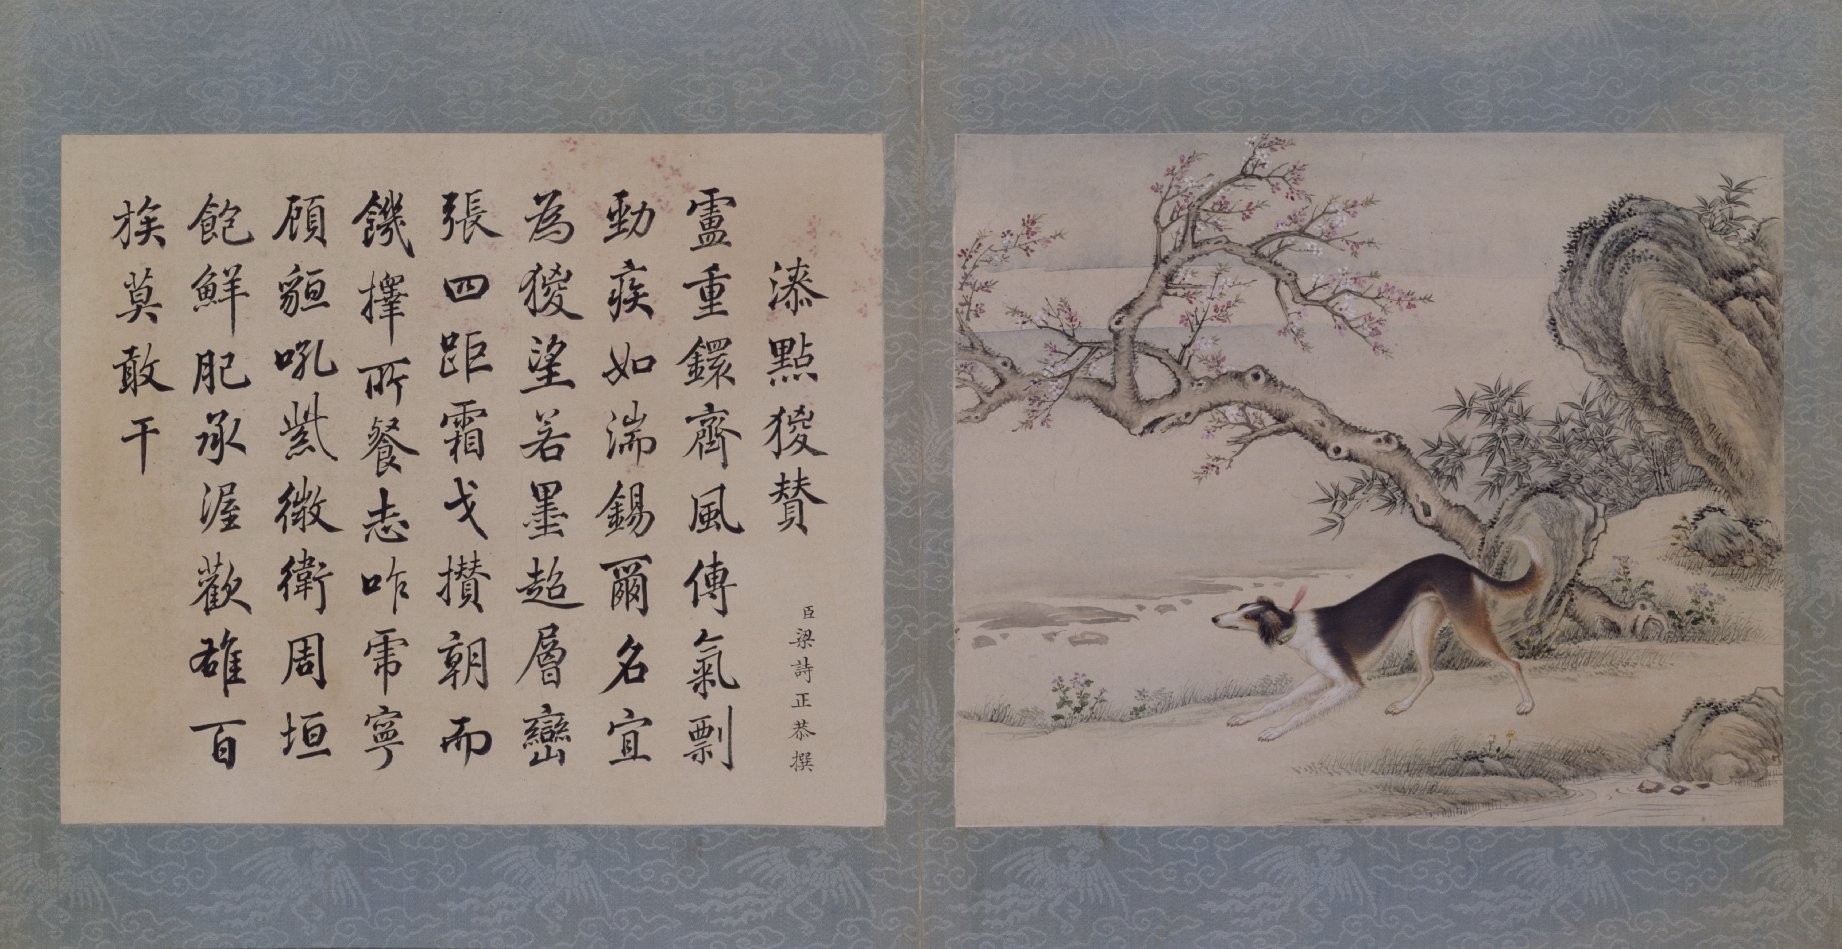 漆點猣贊
臣梁詩正恭撰
盧重鐶齊風傳氣剽
勁疾如湍錫爾名宜
為猣望若墨超層巒
張四距霜戈攢朝而
饑擇所餐志咋虎寧
頋貆吼㹞徼衛周垣
飽鮮肥承渥歡雄百
族莫敢干